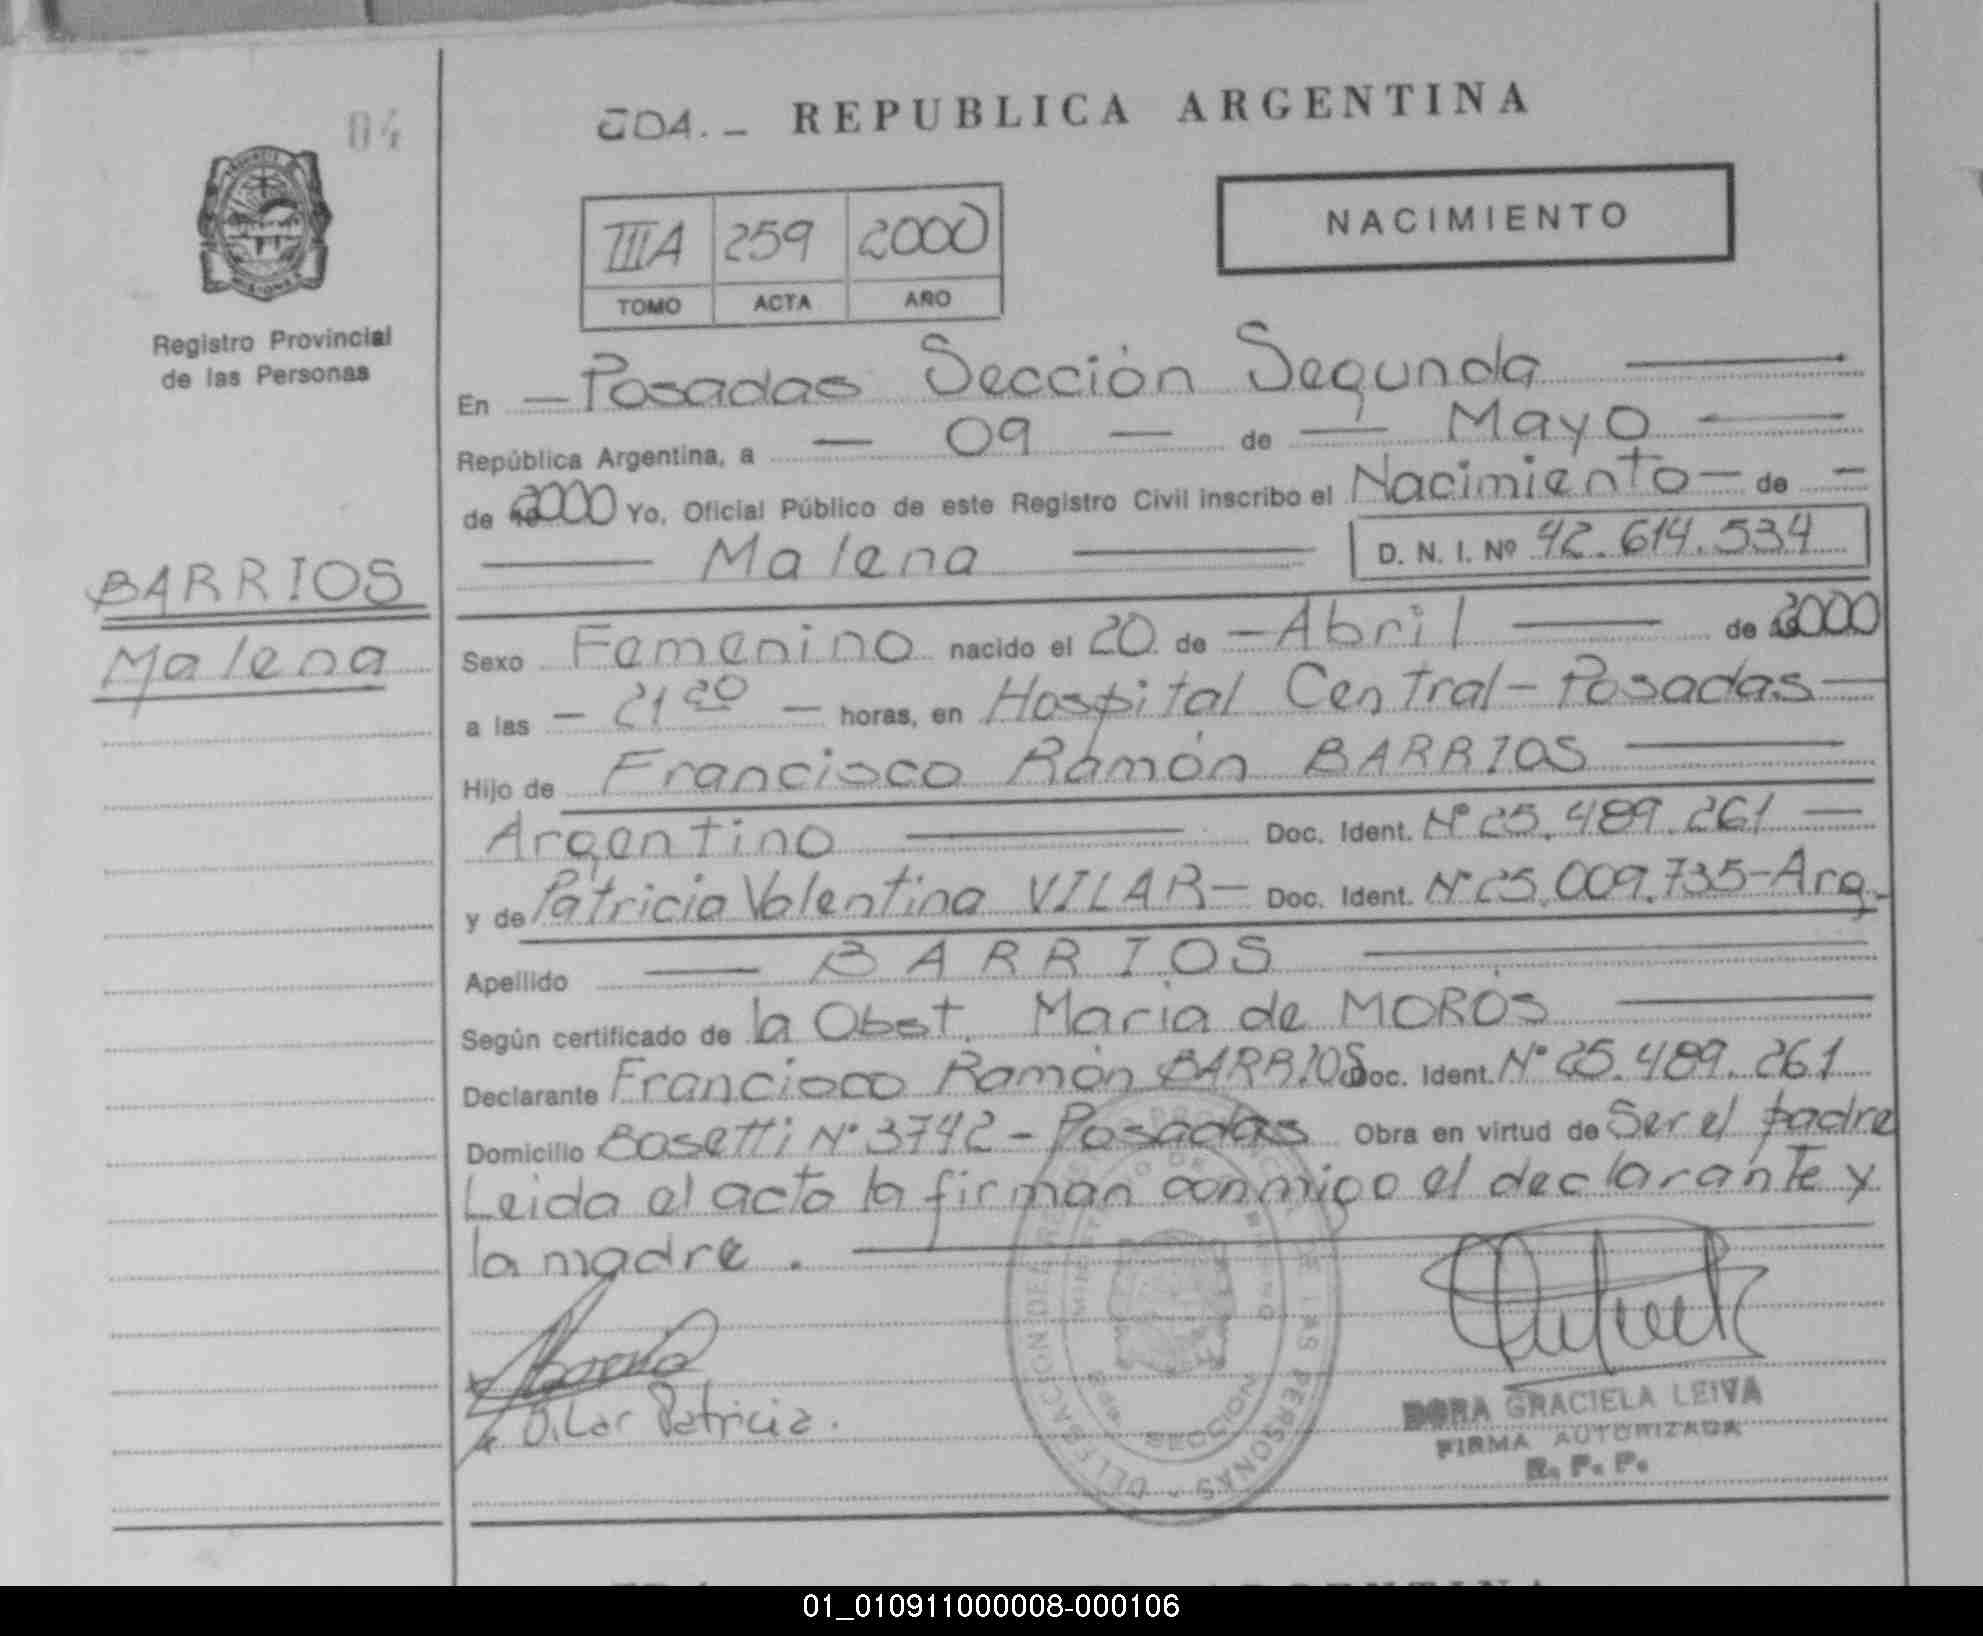 04
CDA. - REPUBLICA ARGENTINA
NACIMIENTO
IIIA 259 2000
TOMO ACTA AÑO
Registro Provincial
de las Personas
BARRIOS
Malena
En - Posadas Sección Segunda
República Argentina, a - 09 - de - Mayo
de 2000 Yo, Oficial Público de este Registro Civil inscribo el Nacimiento - de -
Malena D. N. I. Nº 42.614.534
Sexo Femenino nacido el 20 de - Abril de 2000
a las - 21 20 - horas, en Hospital Central - Posadas -
Hijo de Francisco Ramón BARRIOS
Argentino Doc. Ident. Nº 25.489.261 -
y de Patricia Valentina VILAR - Doc. Ident. Nº 25.009.735 - Arg.
Apellido BARRIOS
Según certificado de la Obst. María de MOROS
Declarante Francisco Ramón BARRIOS Doc. Ident. Nº 25.489.261
Domicilio Bosetti Nº 3742 - Posadas Obra en virtud de Ser el padre
Leida el acta la firman conmigo el declarante y
la madre.
Vilar Patricia.
DELEGACION DE REGISTRO PROVINCIAL DE LAS PERSONAS
MINISTERIO DE GOBIERNO
SECCION
DORA GRACIELA LEIVA
FIRMA AUTORIZADA
R. P. P.
01_010911000008-000106